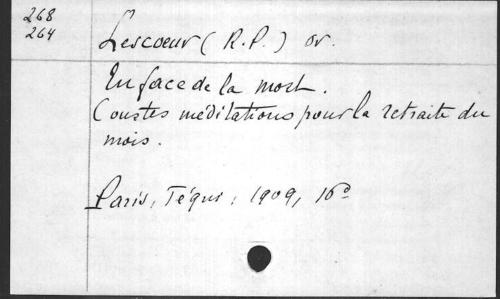 268
264
Lescoeur (R.P.) or.
En face de la mort.
Courtes méditations pour la retraite du
mois.
Paris, Téqui, 1909, 16°